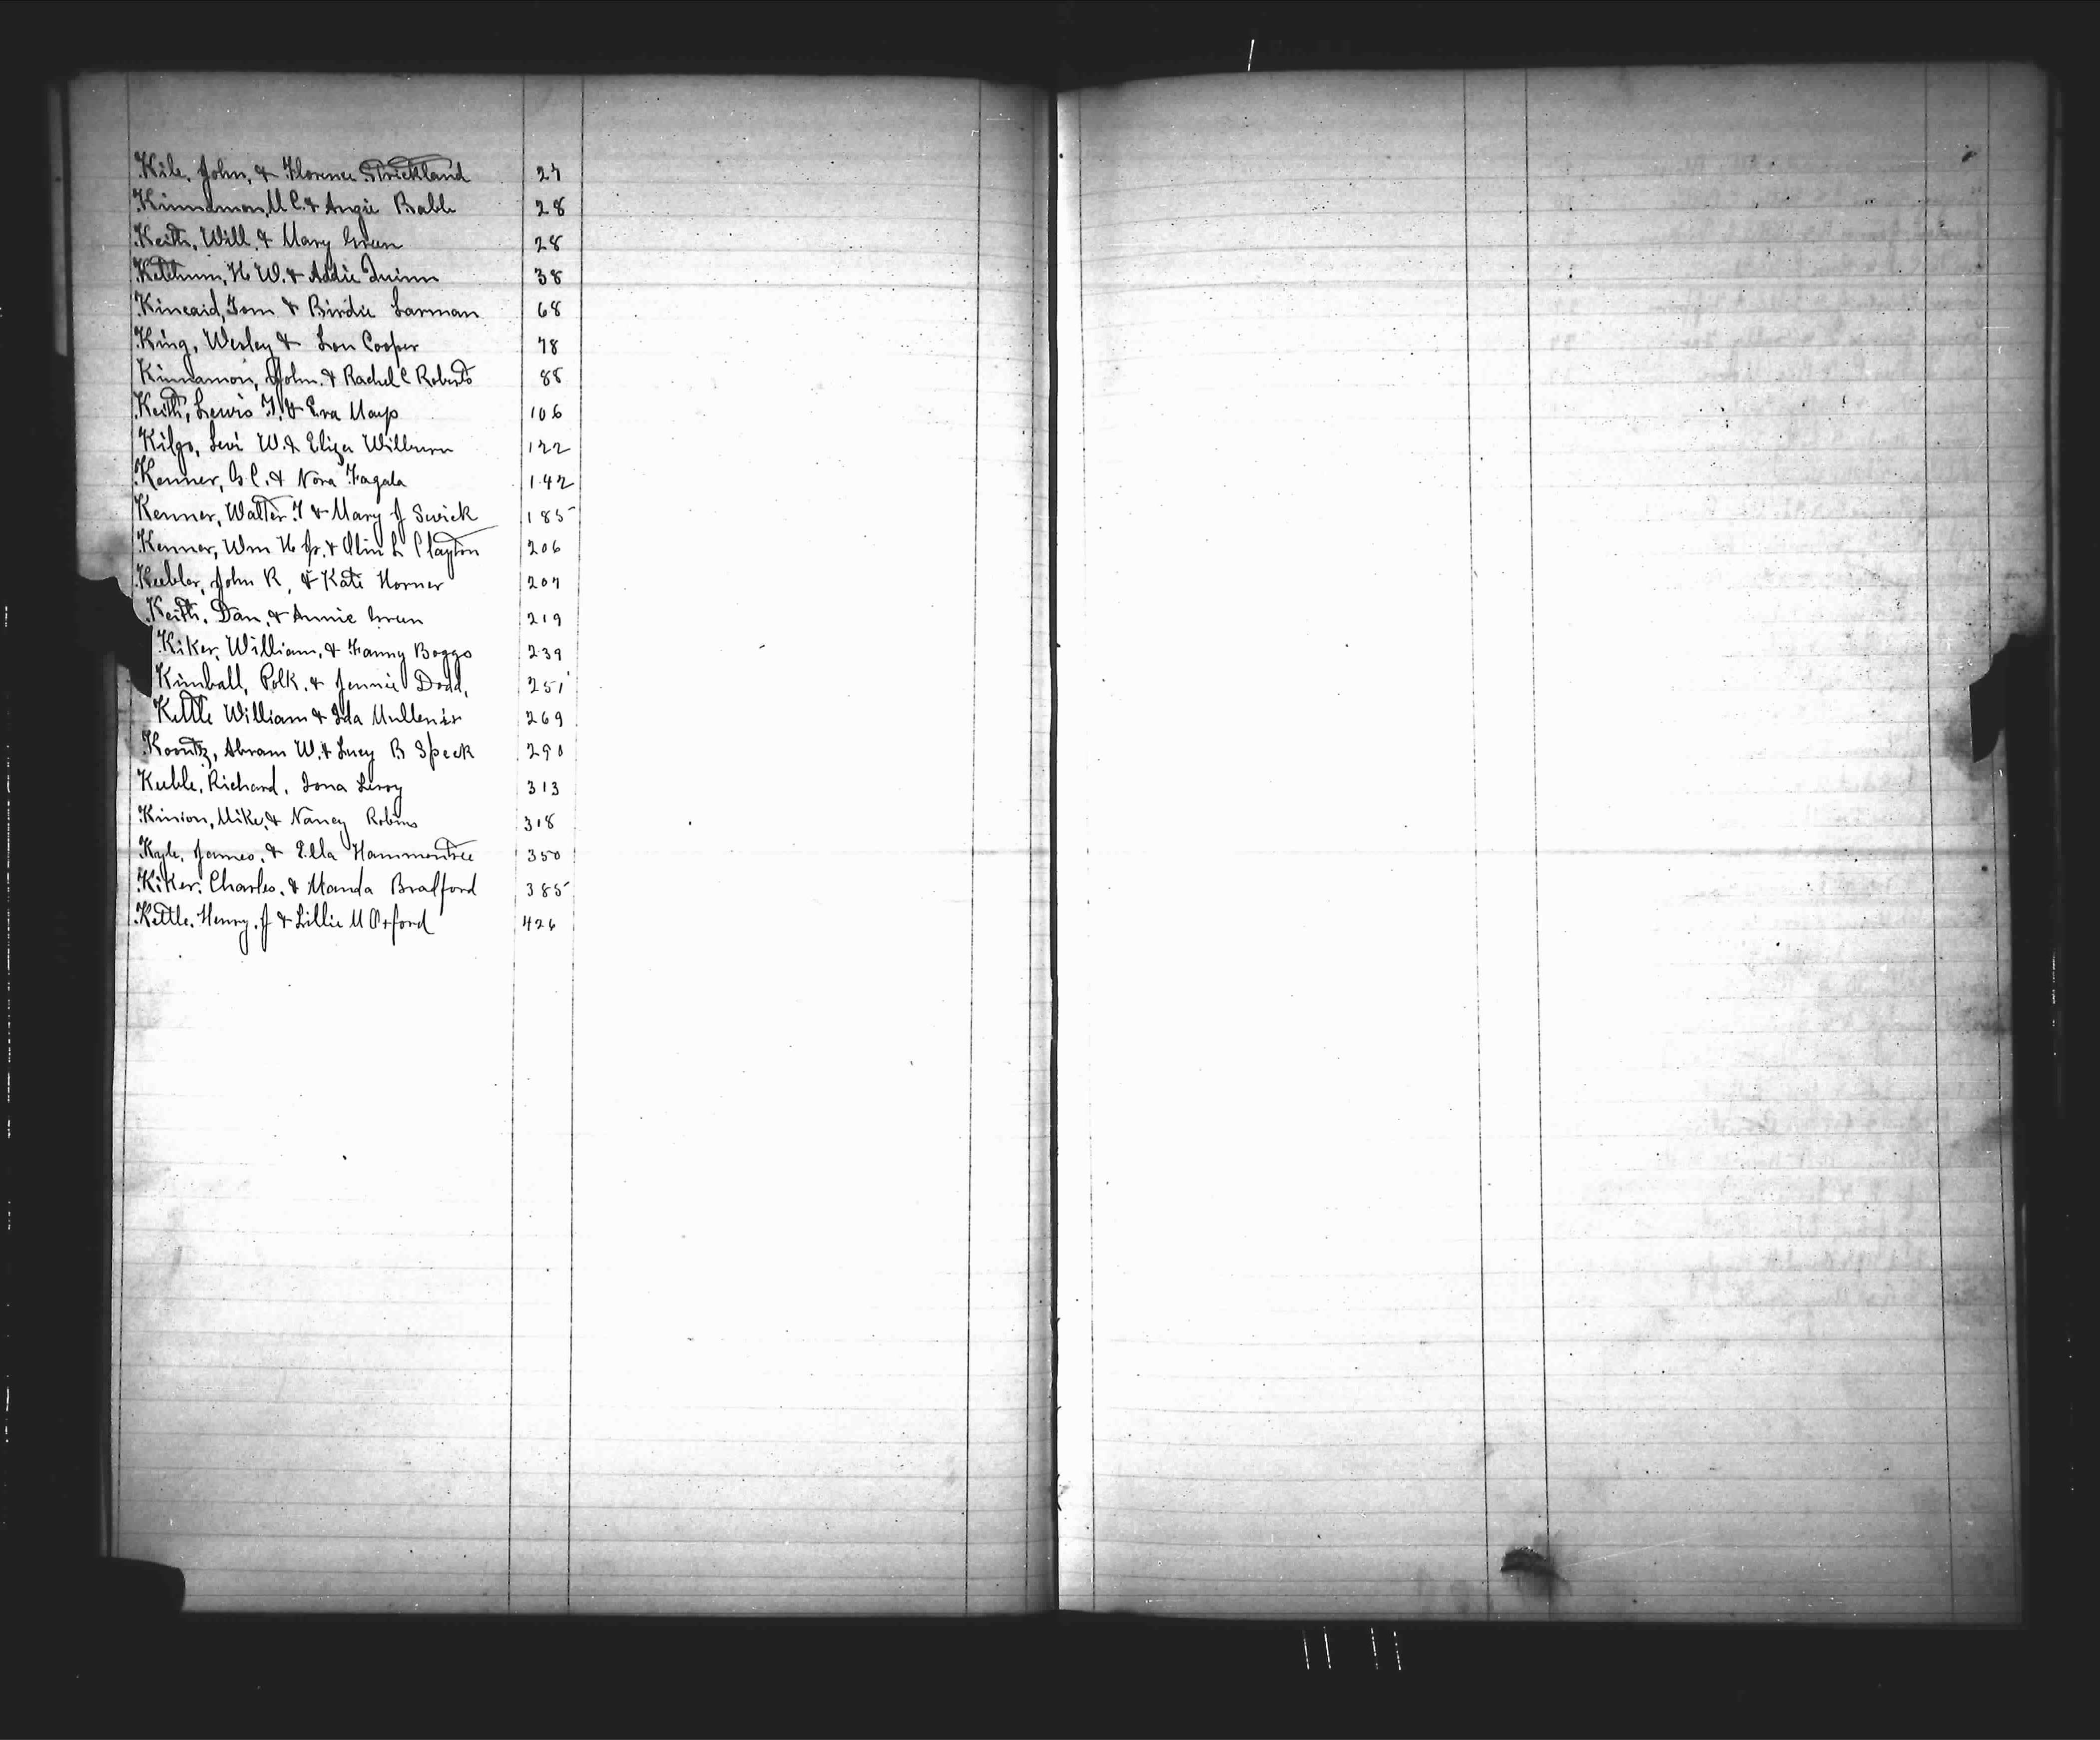 Kile, John, & Florence Strickland 27
Kinnamon, M C. & Angie Babb 28
Keith, Will. & Mary Green 28
Ketchum, H W. & Addie Quinn 38
Kincaid, Tom & Birdie Larman 68
King, Wesley & Lou Cooper 78
Kinnamon, John. & Rachel C Roberts 88
Keith, Lewis F. & Eva Mays 106
Kilgo, Levi W. & Eliza Wilburn 122
Kenner, G C. & Nora Fagala 142
Kenner, Walter F & Mary J Swick 185
Kenner, Wm H Jr. & Olin L Clayton 206
Keebler, John R, & Kate Horner 207
Keith, Dan, & Annie Green 219
Kiker, William, & Fanny Boggs 239
Kimball, Polk, & Jennie Dodd, 251
Kettle William & Ida Mullenix 269
Koontz, Abram W. & Lucy B Speck 290
Keeble, Richard, Iona Leroy 313
Kinion, Mike, & Nancy Robins 318
Kyle, James, & Ella Hammontree 350
Kiker, Charles, & Manda Bradford 385
Kettle, Henry, J & Lillie M Orford 426